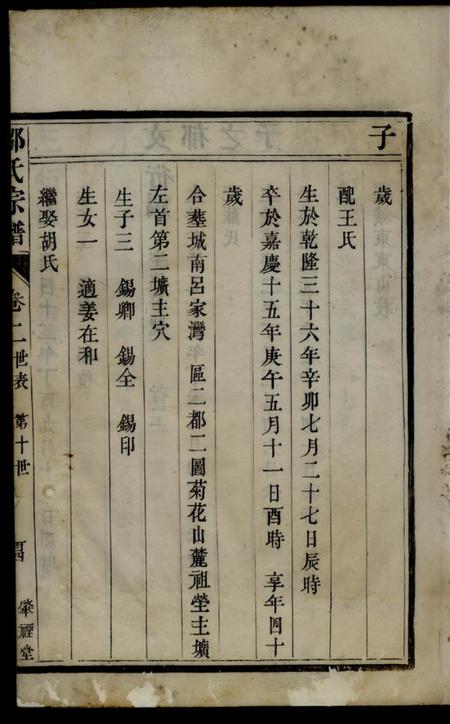 子
歲
配王氏
生於乾隆三十六年辛卯七月二十七日辰時
卒於嘉慶十五年庚午五月十一日酉時 享年四十
歲
合塟城南呂家灣 區二都二圖菊花山麓祖塋主壙
左首第二壙主穴
生子三 錫卿 錫全 錫印
生女一 適姜在和
繼娶胡氏
氏宗譜 卷二 世表 第十世 肇禋堂